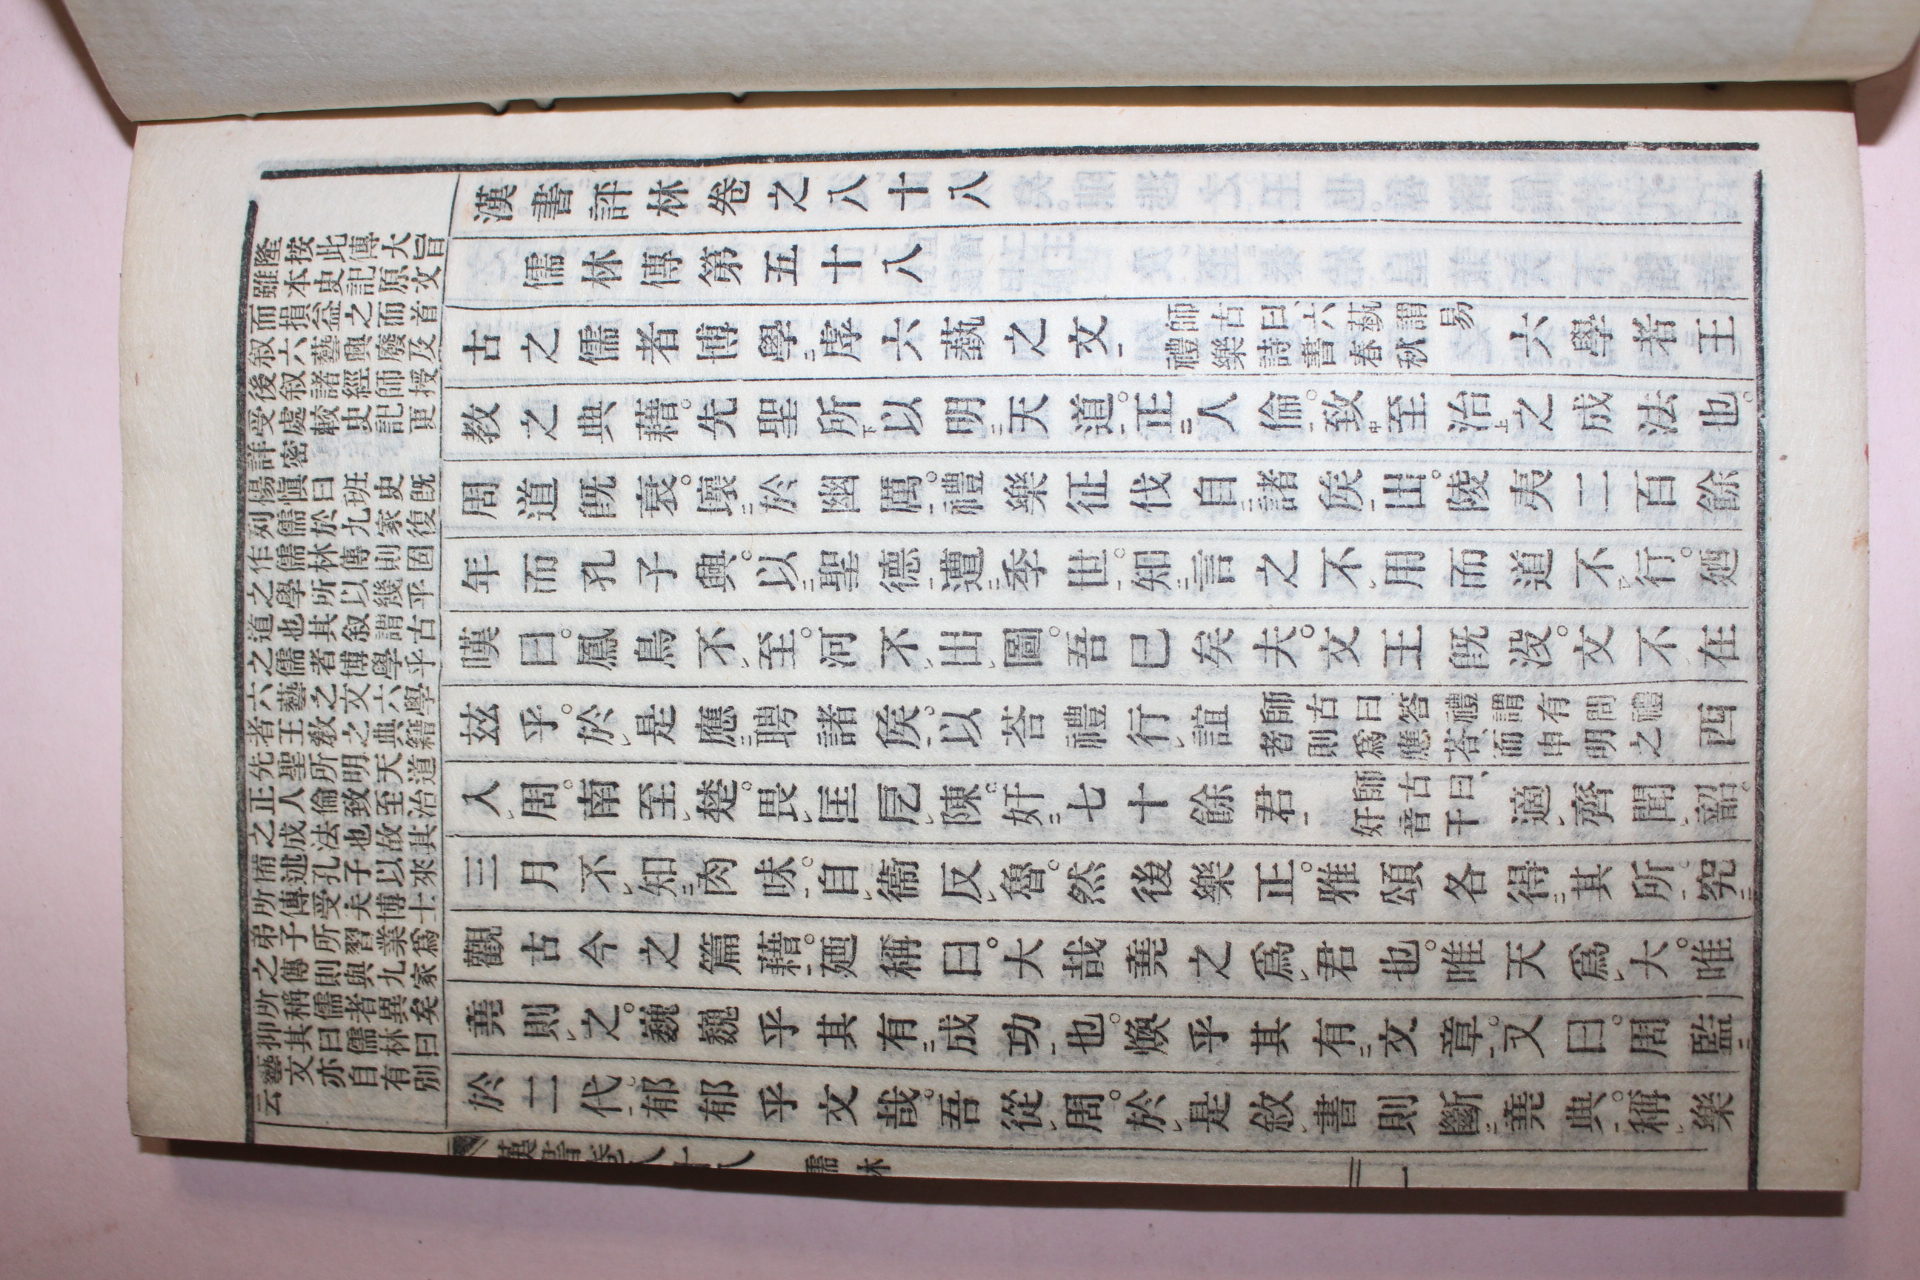 漢書評林卷之八十八
儒林傳第五十八
古之儒者博學虖六藝之文師古曰、六藝謂易禮樂詩書春秋六學者王
教之典藉。先聖所以明天道。正人倫。致至治之成法也。
周道既衰。壞於幽厲。禮樂征伐自諸侯出。陵夷二百餘
年而孔子興。以聖德遭季世。知言之不用而道不行。廼
嘆曰。鳳鳥不至。河不出圖。吾已矣夫。文王既没。文不在
兹乎。於是應聘諸侯。以荅禮行誼師古曰答禮謂有問禮者則爲應荅而申明之西
入周。南至楚。畏匡戹陳。奸七十餘君師古曰、奸音干適齊聞韶。
三月不知肉味。自衞反魯。然後樂正。雅頌各得其所。究
觀古今之篇藉。廼稱曰。大哉堯之爲君也。唯天爲大。唯
堯則之。巍巍乎其有成功也。煥乎其有文章。又曰。周監
於二代。郁郁乎文哉。吾從周。於是敘書則斷堯典。稱樂
隆按此傳大旨
雖本史記原文
而損益之而首
叙六藝興廢及
後叙諸經師授
受處較史記更
詳密
楊慎曰班史既
列儒於九家復
作儒林傳則固
之學所以幾乎
道也其叙謂古
之儒者博學乎
六藝之文六學
者王教之典籍
先聖所明天道
正人倫致至治
之成法也故其
備述孔子以來
所傳受夫博士
弟子所習業爲
之傳則與九家
所稱儒者異矣
抑其曰儒林曰
藝文亦自有別
云
漢書卷八十八 儒林 一